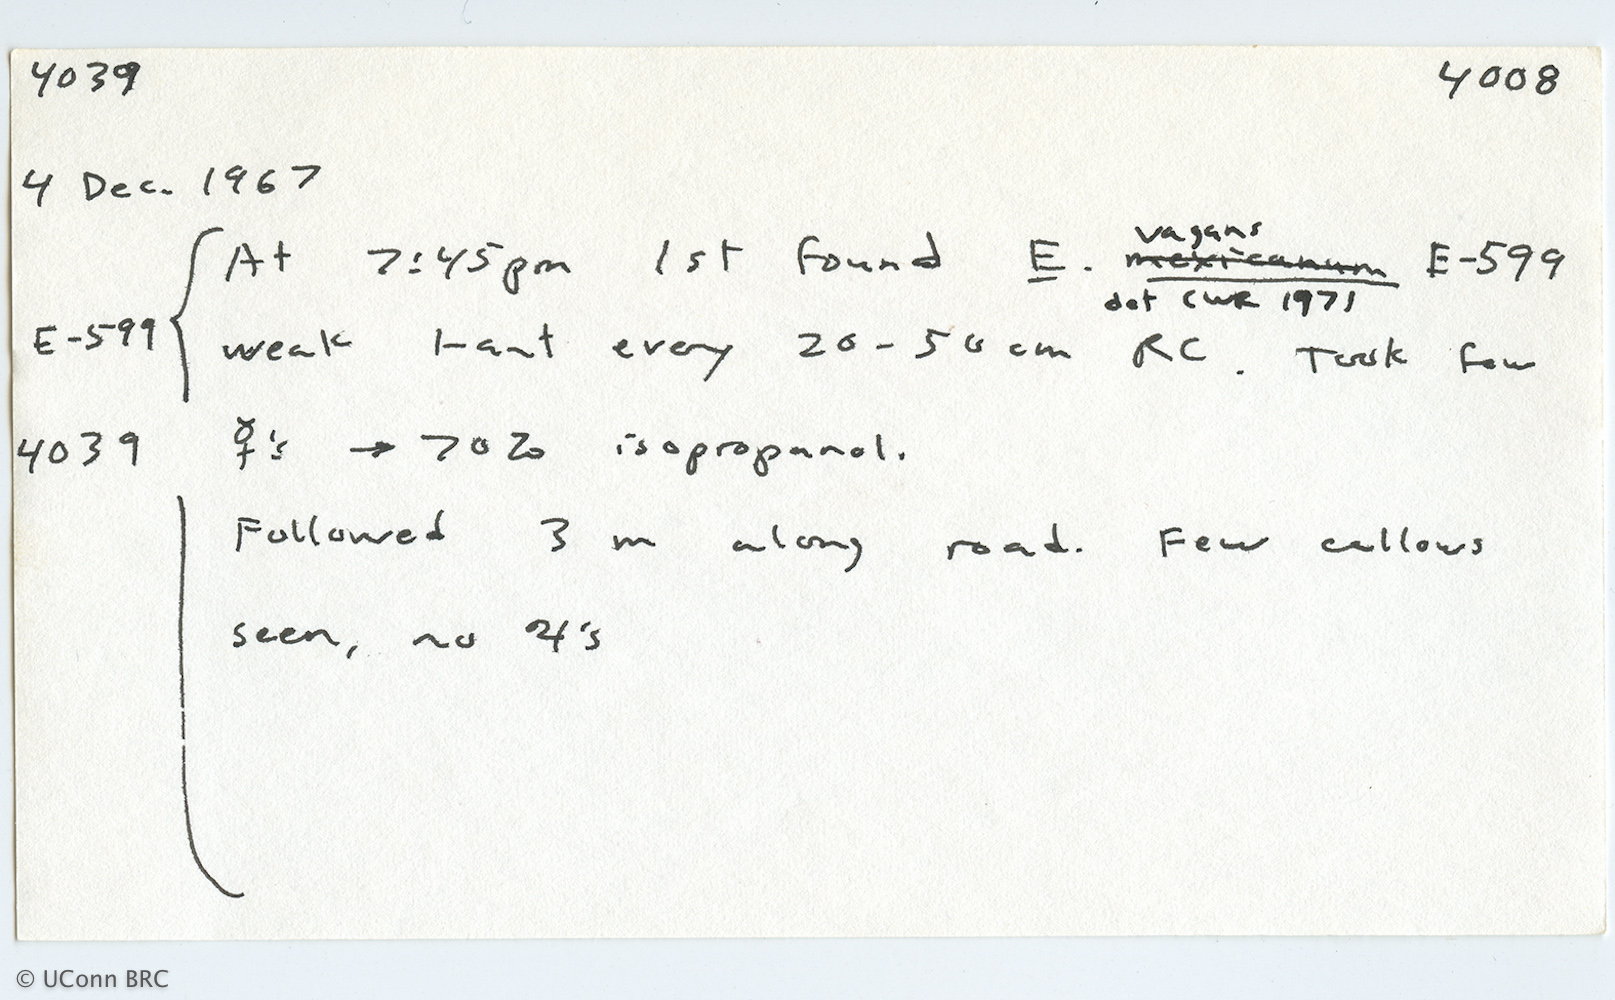 4039 4008
4 Dec. 1967
At 7:45pm 1st found E. vagans mexicanum E-599
det CWR 1971
E-599 weak 1-ant every 20-50 cm RC. Took few
4039 ☿'s → 70% isopropanol.
Followed 3 m along road. Few callows
seen, no ♃'s
© UConn BRC